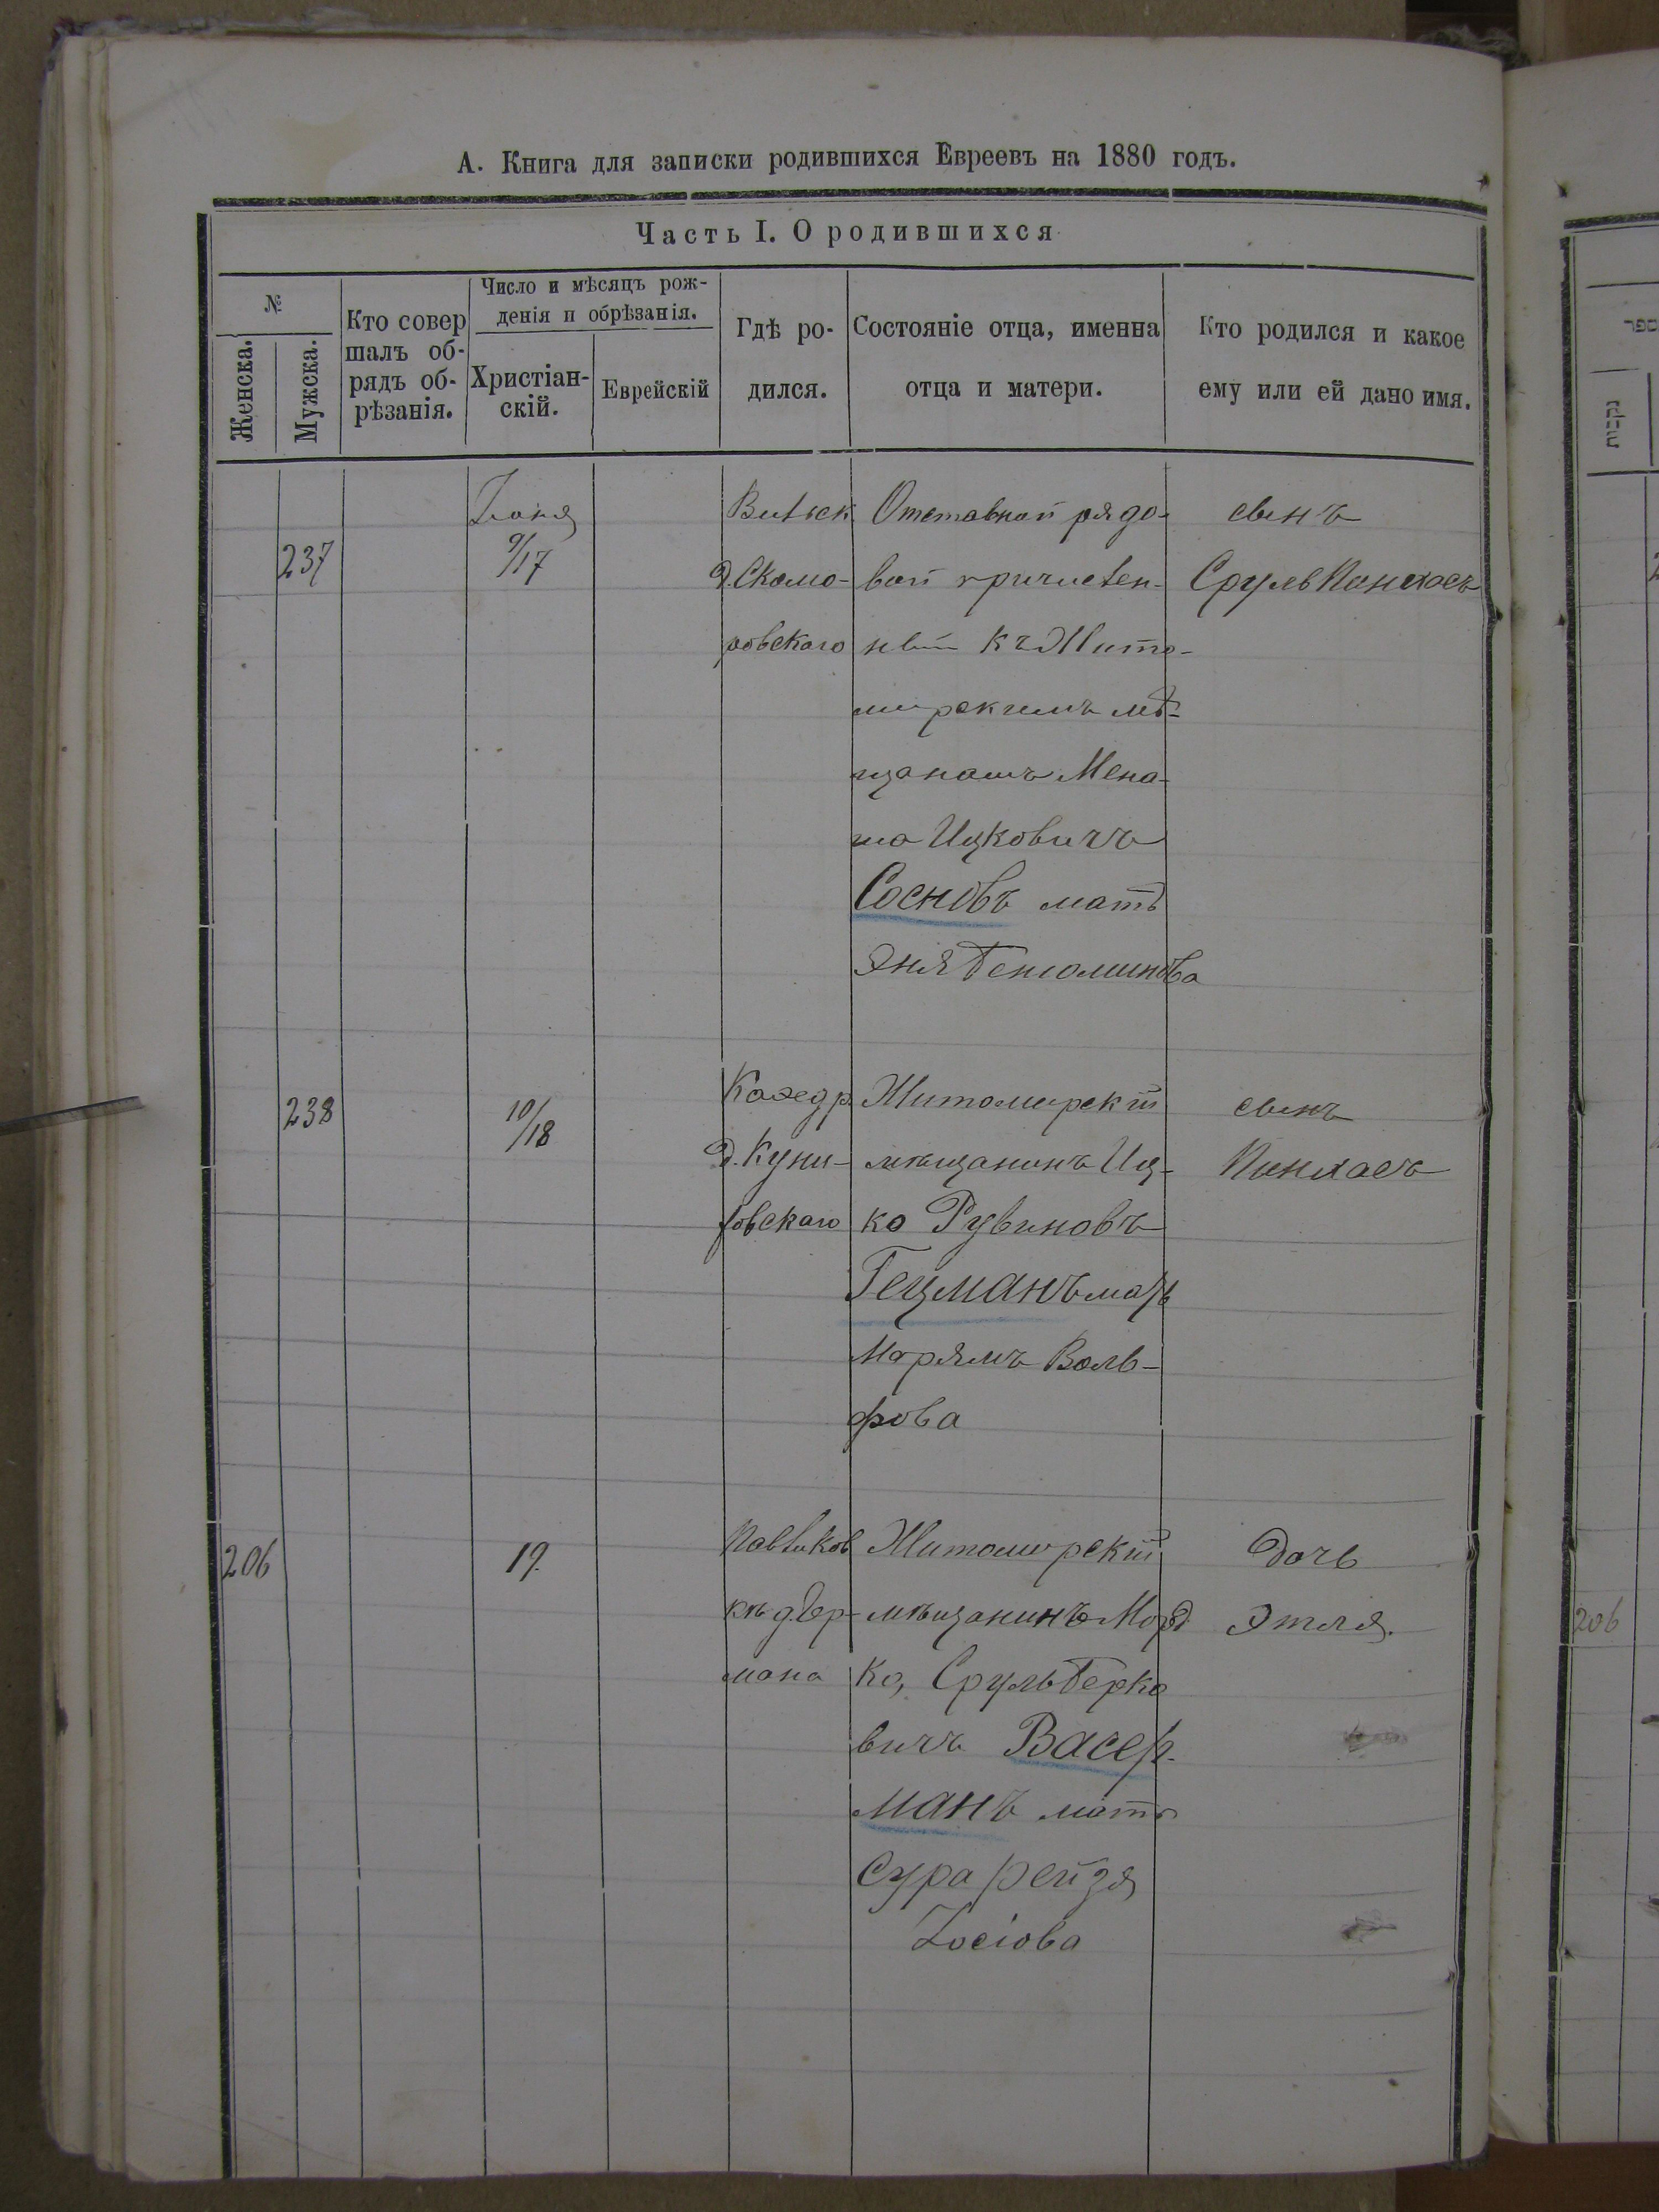 А. Книга для записки родившихся Евреевъ на 1880 годъ.
Часть I. О родившихся
№
Женска.
Мужска.
Кто совер
шалъ об-
рядъ об-
рѣзанія.
Число и мѣсяцъ рож-
денія и обрѣзанія.
Христіан-
скій.
Еврейскій
Гдѣ ро-
дился.
Состояніе отца, именна
отца и матери.
Кто родился и какое
ему или ей дано имя.
237
Іюня
9/17
Вильск
д. Скомо-
ровскаго
Отставной рядо-
вой причислен-
ный къ Жито-
мирскимъ мѣ-
щанамъ Мена-
ша Ицковичъ
Сосновъ мать
Эня Бенюминова
сынъ
Сруль Пинхасъ
238
10/18
Кафедр
д. Куни-
ровскаго
Житомирскій
мѣщанинъ Иц-
ко Рувиновъ
Гецманъ мать
Марямъ Воль-
фова
сынъ
Пинхасъ
206
19.
д. Гер-
мана
Житомирскій
мѣщанинъ Морд
ко, Сруль Берко
вичъ Васер-
манъ мать
Сура Рейзя
Іосіова
Дочь
Этля.
נקבות
206